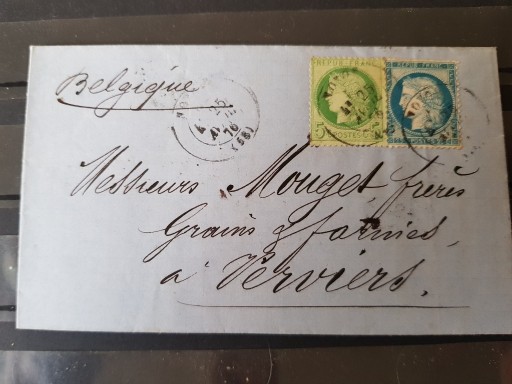 Belgique
REPUB FRANC
REPUB. FRANC
5
POSTES
AVRIL
76
(68)
Messieurs Mouget, frères
Grains & farines,
à Verviers.